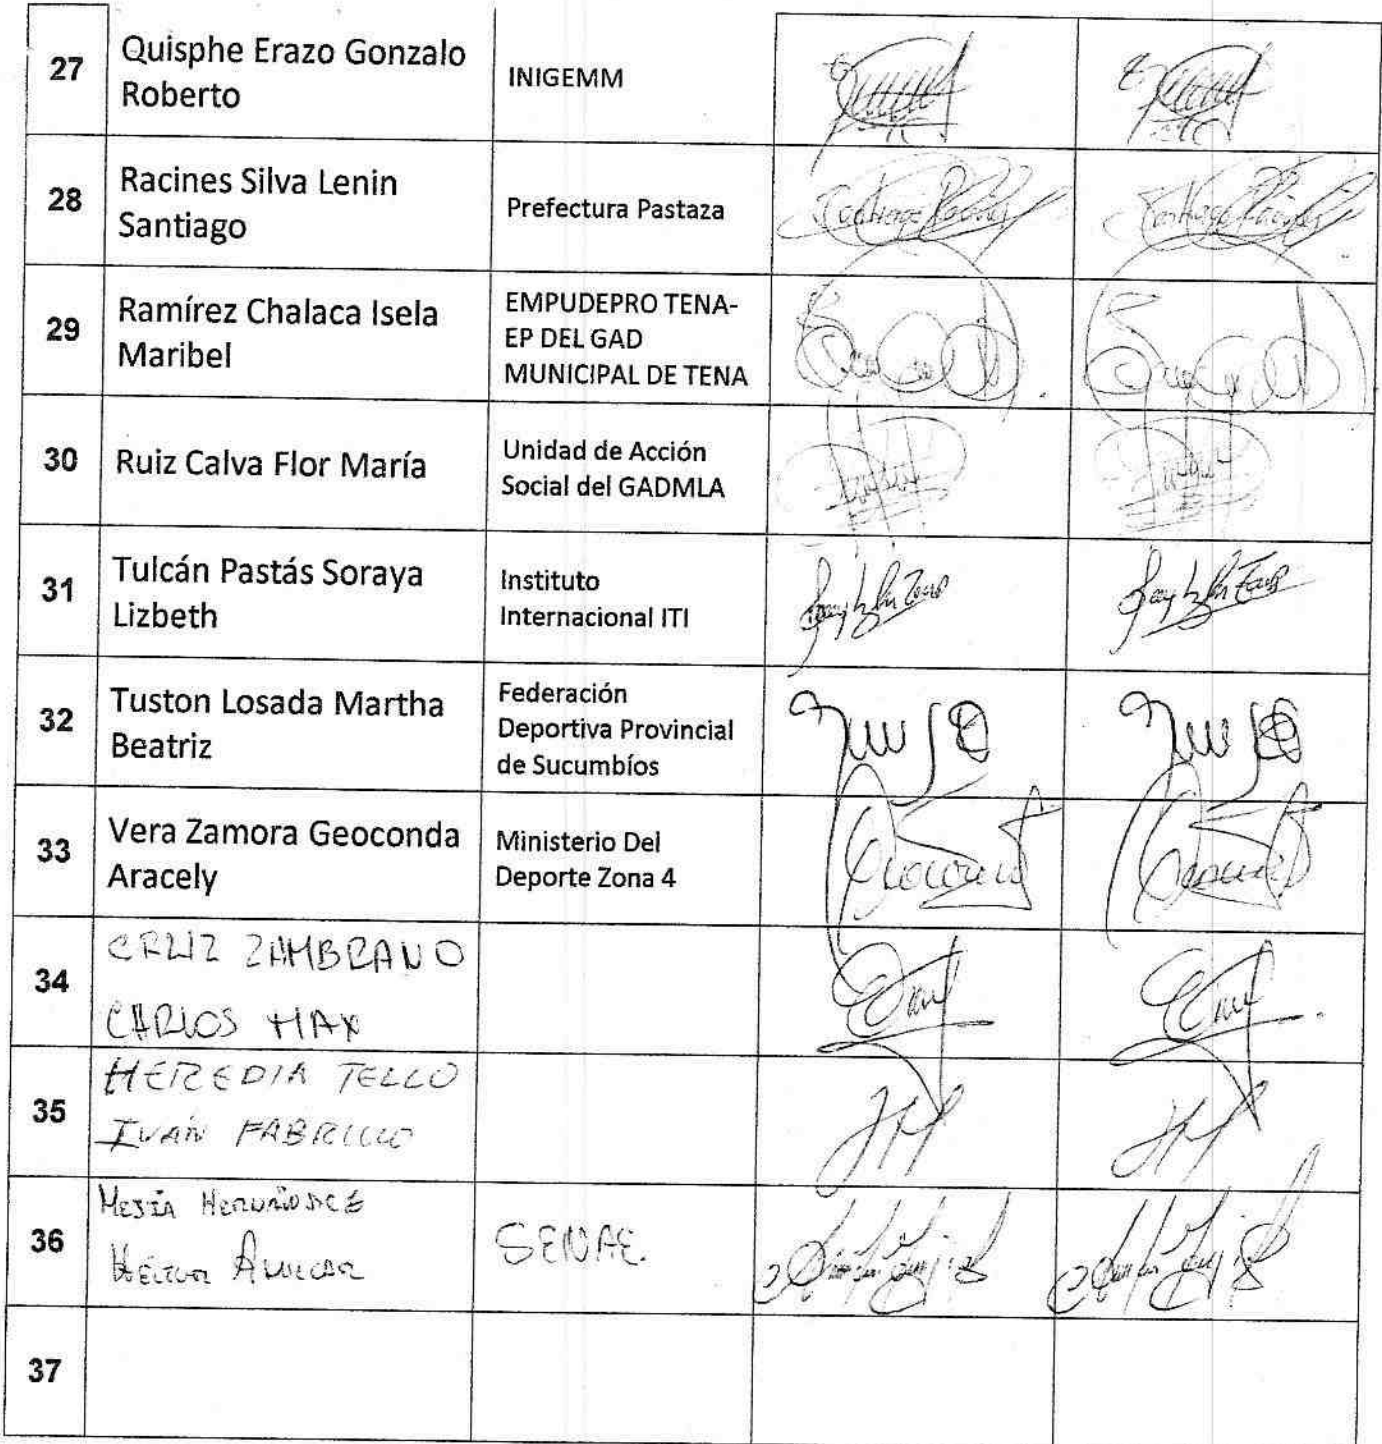 27
Quisphe Erazo Gonzalo
Roberto
INIGEMM
28
Racines Silva Lenin
Santiago
Prefectura Pastaza
29
Ramírez Chalaca Isela
Maribel
EMPUDEPRO TENA-
EP DEL GAD
MUNICIPAL DE TENA
30
Ruiz Calva Flor María
Unidad de Acción
Social del GADMLA
31
Tulcán Pastás Soraya
Lizbeth
Instituto
Internacional ITI
32
Tuston Losada Martha
Beatriz
Federación
Deportiva Provincial
de Sucumbíos
33
Vera Zamora Geoconda
Aracely
Ministerio Del
Deporte Zona 4
34
CRUZ ZAMBRANO
CARLOS MAX
35
HEREDIA TELLO
IVÁN
36
MESÍA
SENAE.
37